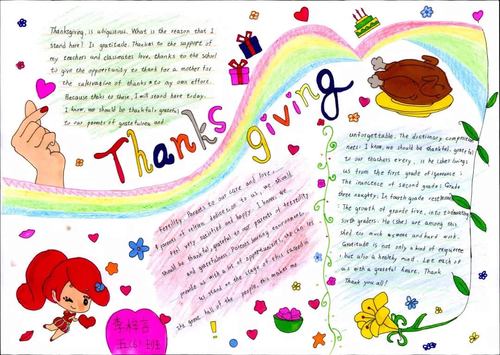 Thanksgiving, is ubiquitous. What is the reason that I
stand here? Is gratitude. Thanks to the support of
my teachers and classmates love, thanks to the school
to give the opportunity to thank for a mother for
the cultivation of thanks to my own effort.
Because thanks to these, I will stand here today.
I know, we should be thankful, grateful
to our parents of gratefulness and
Thanks giving
fertility. Parents to our care and love,
parents of selfless dedication to us, we should
feel very satisfied and happy. I know, we
should be thankful, grateful to our parents of fertility
and gratefulness. Parents nursing environment,
provide us with a lot of opportunities. She can let
us stand on the stage of this raised in
the great hall of the people, this makes me
unforgettable. The dictionary comprehensive
ness: I know, we should be thankful, grateful
to our teachers every, is he (she) brings
us from the first grade of ignorance:
The innocence of second grade; Grade
three naughty; In fourth grade
The growth of grade five, into
sixth graders. He (she) are among this
shed too much sweat and hard work.
Gratitude is not only a kind of
but also a healthy mind. Let each of
us with a grateful heart. Thank
Thank you all!
五(6)班